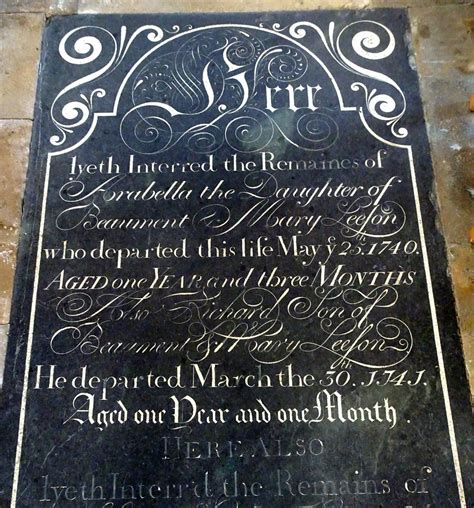 Here
lyeth Interred the Remaines of
Arabella the Daughter of
Beaumont & Mary Leeson
who departed this life May yᵉ 25.ᵗʰ 1740.
AGED one YEAR and three MONTHS
Also Richard Son of
Beaumont & Mary Leeson
He departed March the 30.ᵗʰ 1741.
Aged one Year and one Month.
HERE ALSO
lyeth Interr'd the Remains of